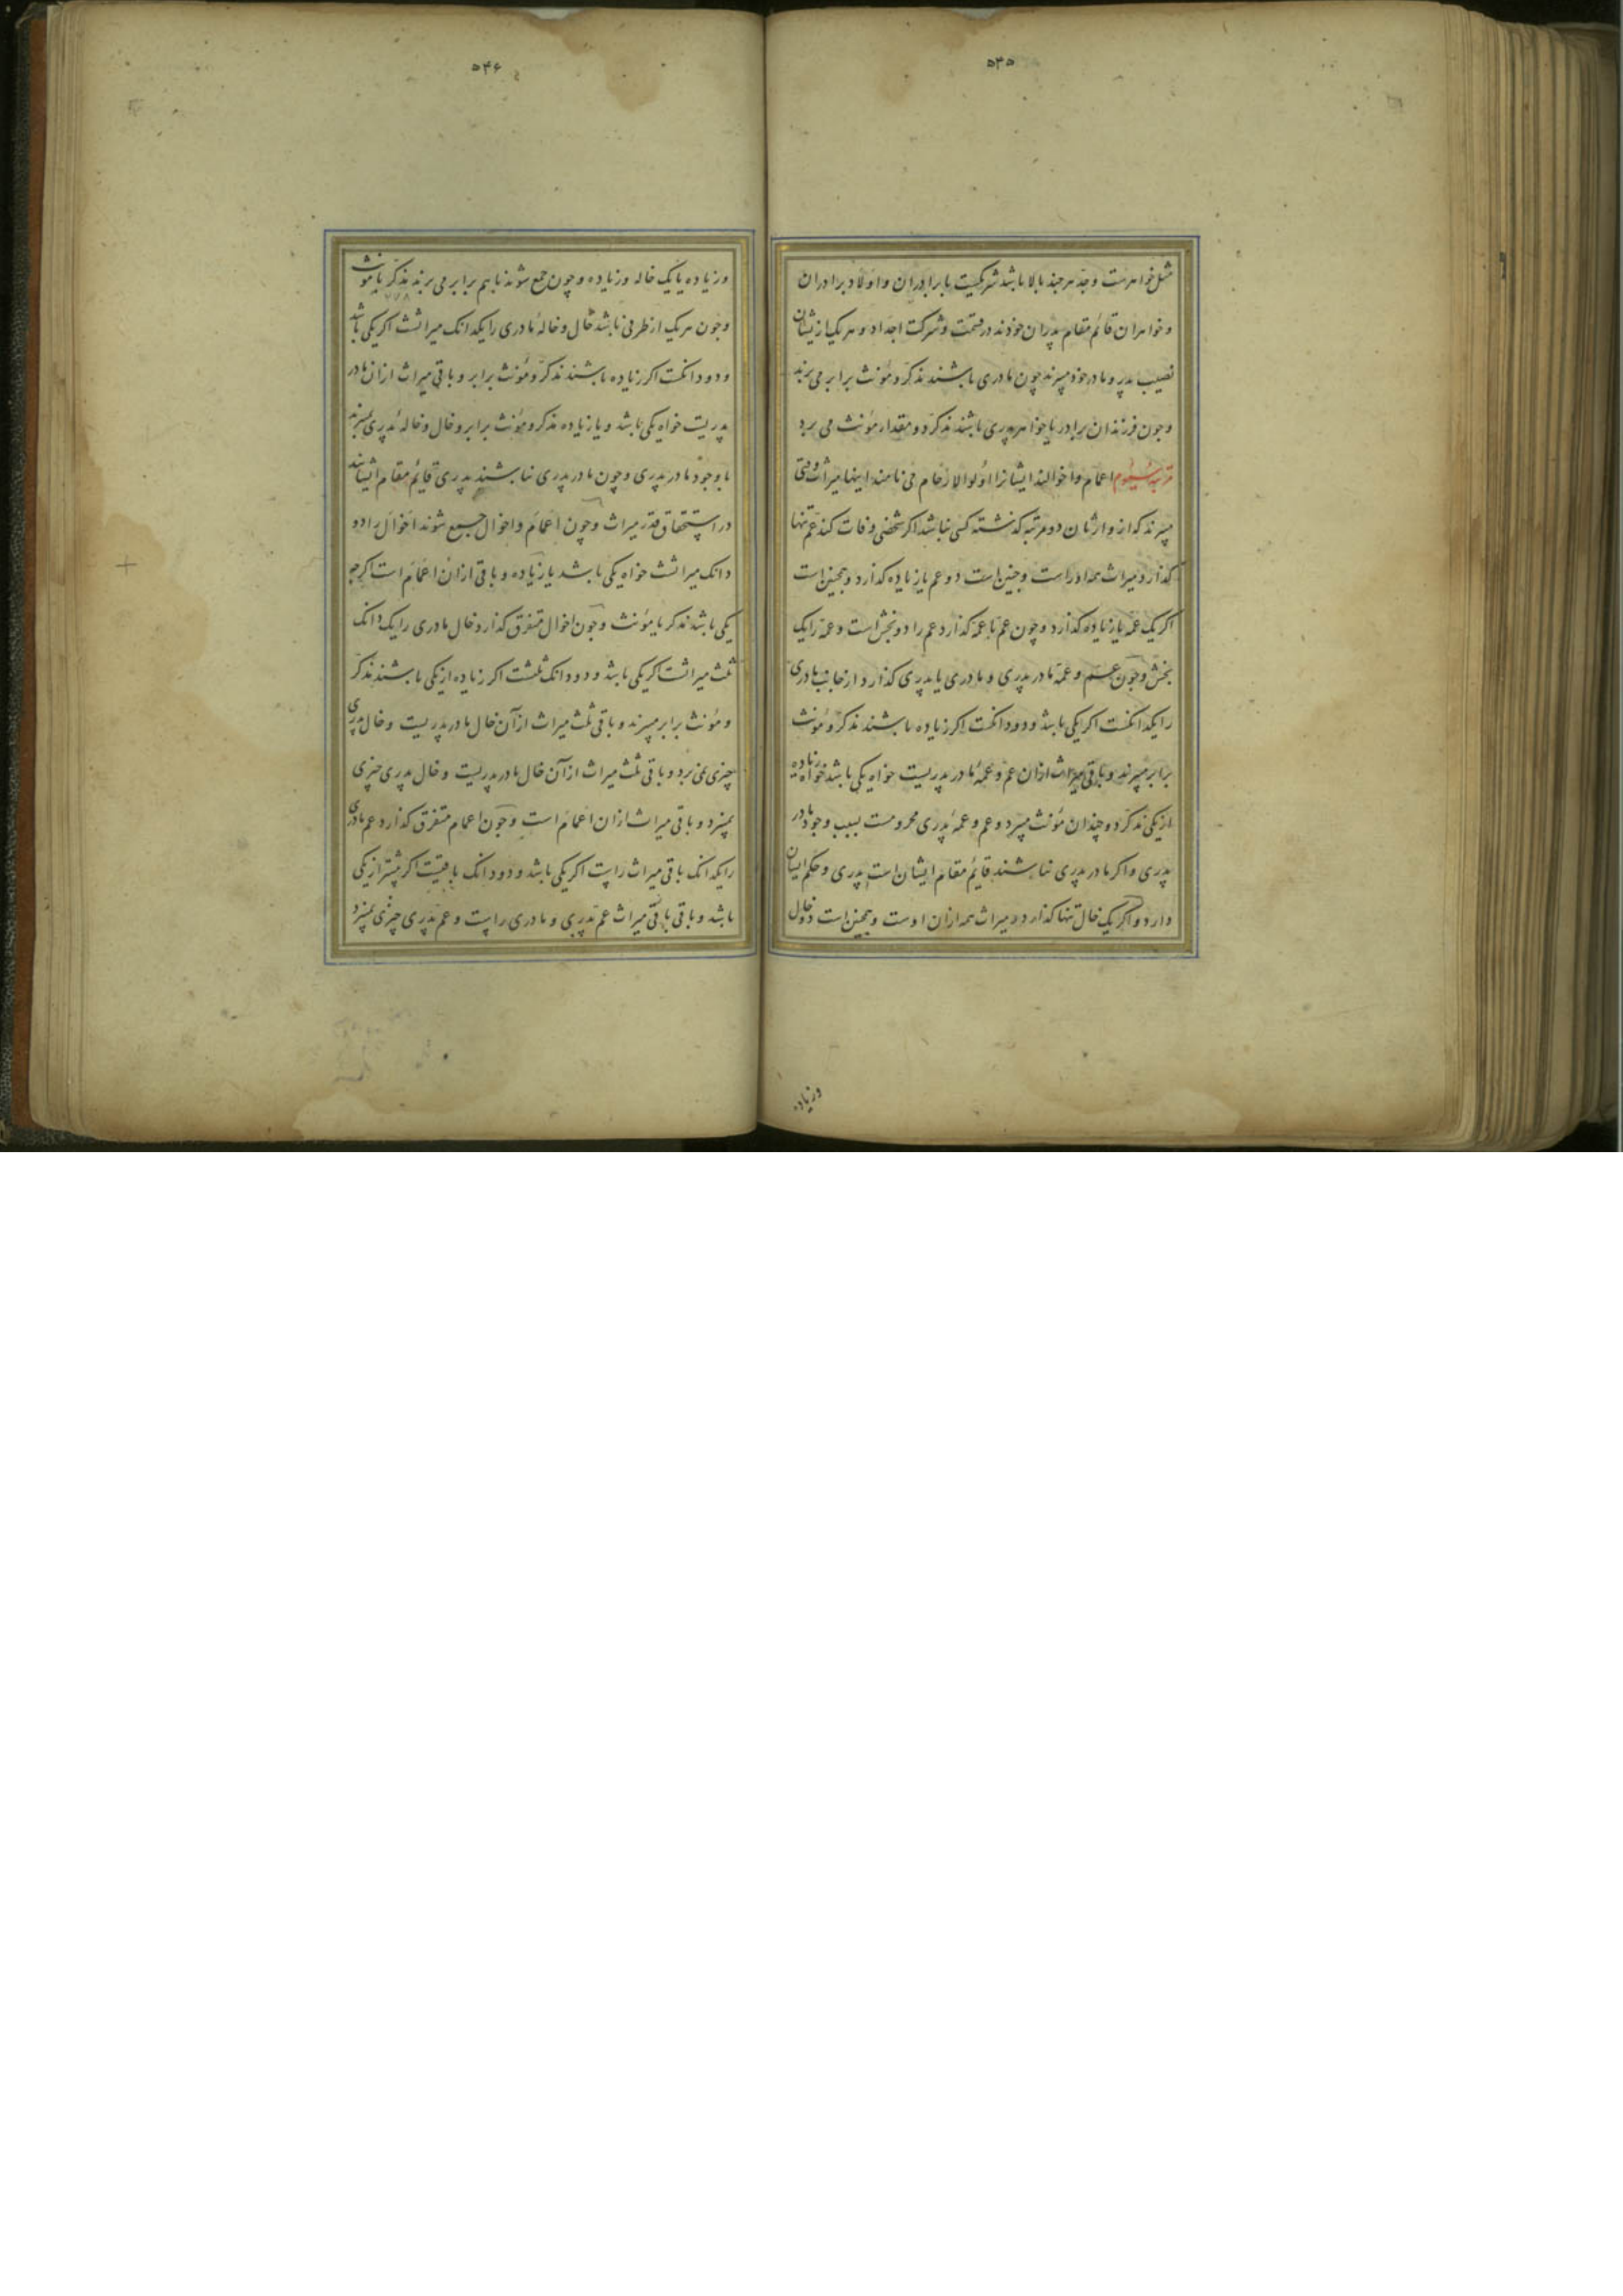 ۵۴۵
مثل خواهرست وجد هر چند بالا باشد شریکیت با برادران و اولاد برادران
و خواهران قائم مقام پدران خودند در قسمت وشرکت اجداد و هر یک از یشان
نصیب پدر و مادر خود میبرند چون مادری باشند مذکر و مؤنث برابر می برند
وچون فرزندان برادر یا خواهر پدری باشند مذکر دو مقدار مؤنث می برد
مرتبه سیوم اعمام و اخوالند ایشانرا اولوا الارحام می نامند اینها میراث وقتی
میبرند که از وارثان دو مرتبه گذشته کسی نباشد اگر شخصی وفات کند عم تنها
گذارد میراث همه اوراست وچنین است دو عم یا زیاده گذارد وهمچنین است
اگر یک عمه یا زیاده گذارد وچون عم با عمه گذارد عم را دو بخش است و عمه را یک
بخش وچون عم و عمه مادر پدری و مادری یا پدری گذارد از جانب مادری
را یکدانکست اگر یکی باشد ودودانکست اگر زیاده باشند مذکر و مؤنث
برابر میبرند و باقی میراث ازان عم و عمهٔ مادر پدریست خواه یکی باشد خواه زیاده
از یکی مذکر دو چندان مؤنث میبرد و عم و عمهٔ پدری محرومست بسبب وجود مادر
پدری و اگر مادر پدری نباشند قایم مقام ایشان است پدری وحکم ایشان
دارد و اگر یک خال تنها گذارد میراث همه ازان اوست وهمچنین است دو خال
وزیاده
۵۴۶
وزیاده یا یک خاله وزیاده وچون جمع شوند با هم برابر می برند مذکر با مؤنث
وچون هر یک از طرفی باشد خال وخالهٔ مادری را یکدانک میراثست اگر یکی باشد
ودودانکست اگر زیاده باشند مذکر و مؤنث برابر و باقی میراث ازان مادر
پدریست خواه یکی باشد و یا زیاده مذکر و مؤنث برابر و خال وخالهٔ پدری نمیبرند
با وجود مادر پدری وچون مادر پدری نباشند پدری قایم مقام ایشانند
در استحقاق قدر میراث وچون اعمام و اخوال جمع شوند اخوال را دو
دانک میراثست خواه یکی باشد یا زیاده و باقی ازان اعمام است اگرچه
یکی باشد مذکر یا مؤنث وچون اخوال متفرق گذارد خال مادری را یک دانک
ثلث میراثست اگر یکی باشد ودودانک ثلثست اگر زیاده از یکی باشند مذکر
و مؤنث برابر میبرند و باقی ثلث میراث ازآن خال مادر پدریست وخال پدری
چیزی نمی برد و باقی ثلث میراث ازآن خال مادر پدریست وخال پدری چیزی
نمیبرد و باقی میراث ازان اعمام است وچون اعمام متفرق گذارد عم مادری
را یکدانک باقی میراث راست اگر یکی باشد ودودانک باقیست اگر بیشتر از یکی
باشد و باقی باقی میراث عم پدری و مادری راست وعم پدری چیزی نمیبرد